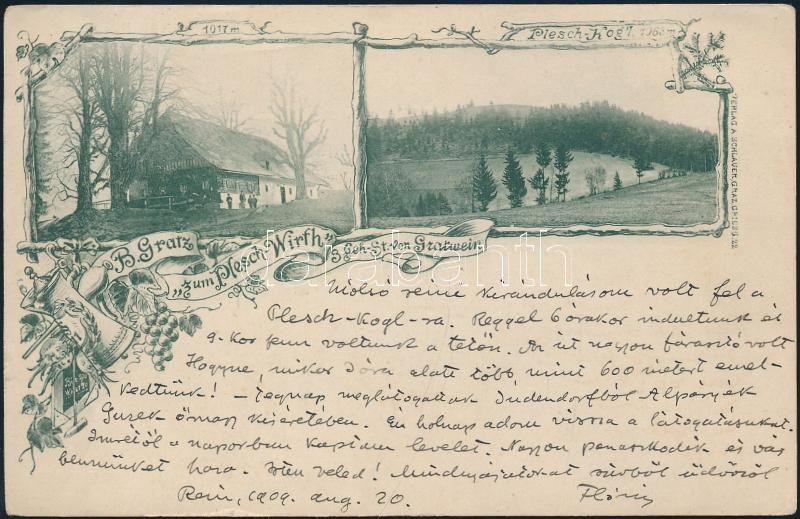 1017 m
Plesch-Kogl 1063 m
VERLAG A. SCHLAUER GRAZ GRIESG. 22
B. Gratz
"zum Plesch-Wirth"
3 Geh-St. von Gratwein
darabanth
Utolsó reini kirándulásom volt fel a
Plesch-Kogl-ra. Reggel 6 órakor indultunk és
9-kor fenn voltunk a tetőn. Az út nagyon fárasztó volt
Hogyne, mikor 3 óra alatt több mint 600 métert emel-
kedtünk! – Tegnap meglátogattak Judendorfból Alpáryék
őrnagy kíséretében. Én holnap adom vissza a látogatásukat.
Imrétől a napokban kaptam levelet. Nagyon panaszkodik és vár
bennünket haza. Isten veled! Mindnyájatokat szívből üdvözöl
Rein, 1909. aug. 20. Flóris